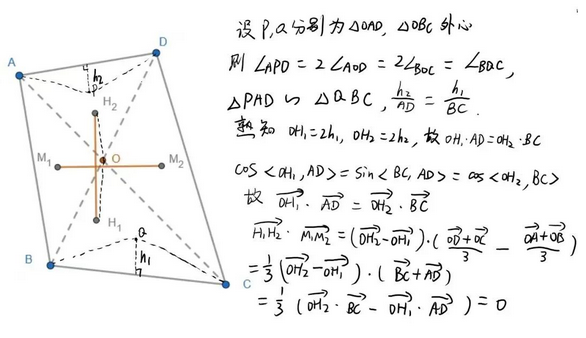 A
D
h₂
P
H₂
M₁
O
M₂
H₁
Q
B
h₁
C
设 P,Q分别为△OAD, △OBC 外心
则 ∠APD = 2∠AOD = 2∠BOC = ∠BQC,
△PAD ∽ △QBC, h₂/AD = h₁/BC.
熟知 OH₁=2h₁, OH₂=2h₂, 故 OH₁·AD=OH₂·BC
cos<OH₁, AD> = sin<BC, AD> = cos<OH₂, BC>
故 \overrightarrow{OH₁} · \overrightarrow{AD} = \overrightarrow{OH₂} · \overrightarrow{BC}
\overrightarrow{H₁H₂} · \overrightarrow{M₁M₂} = (\overrightarrow{OH₂}-\overrightarrow{OH₁}) · ((\overrightarrow{OD}+\overrightarrow{OC})/3 - (\overrightarrow{OA}+\overrightarrow{OB})/3)
= 1/3 (\overrightarrow{OH₂}-\overrightarrow{OH₁}) · (\overrightarrow{BC}+\overrightarrow{AD})
= 1/3 (\overrightarrow{OH₂} · \overrightarrow{BC} - \overrightarrow{OH₁} · \overrightarrow{AD}) = 0